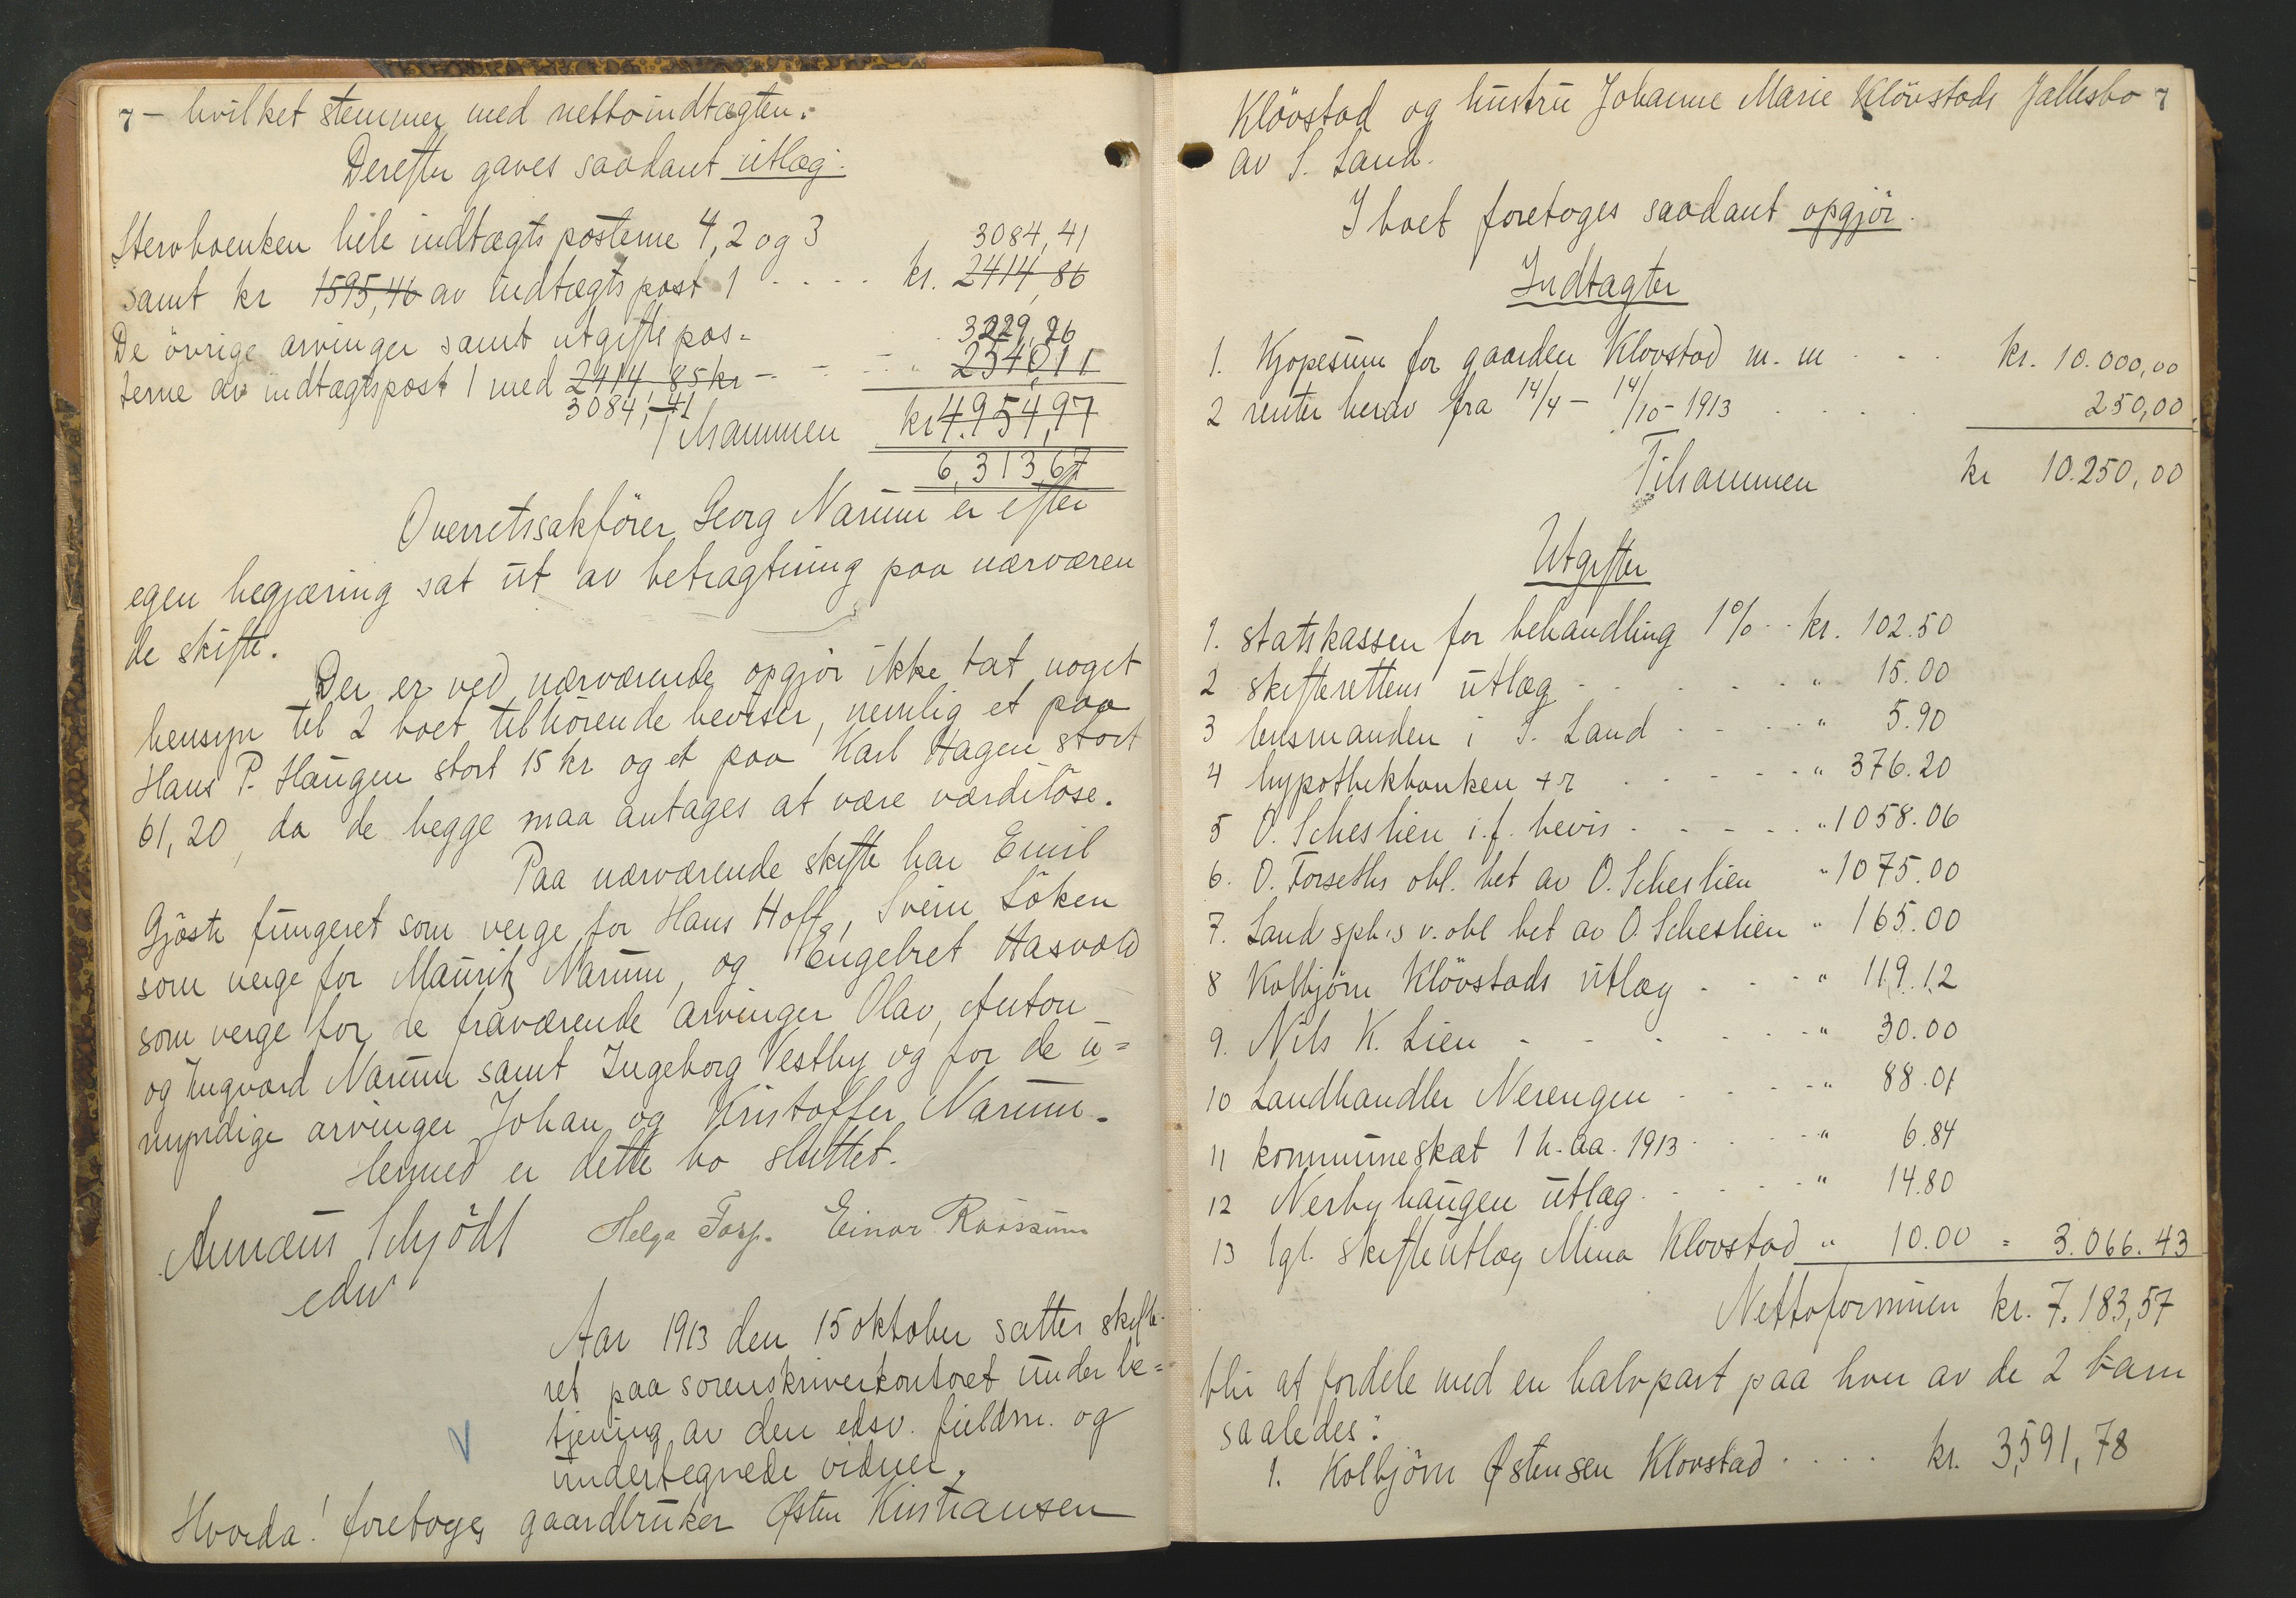 7 - hvilket stemmer med nettoindtægten.
Derefter gaves saadant utlæg:
Stervboenken hele indtægtsposterne 4, 2 og 3 3084,41
samt kr 1595,46 av indtægtspost 1 - - - - kr. 2414,86
De övrige arvinger samt utgiftspos- 3229,26
terne av indtægtspost 1 med 2414,85 kr - - - " 2540,11
3084,41
Tilsammen kr 4.954,97
6,313,67
Overretssakfører Georg Narum er efter
egen begjæring sat ut av betragtning paa nærværen
de skifte.
Der er ved nærværende opgjör ikke tat noget
hensyn til 2 boet tilhörende beviser, nemlig et paa
Hans P. Haugen stort 15 kr og et paa Karl Hagen stort
61,20, da de begge maa antages at være værdilöse.
Paa nærværende skifte har Emil
Gjöste fungeret som verge for Hans Hoff, Svein Löken
som verge for Mauritz Narum, og Engebret Hasvold
som verge for de fraværende arvinger Olav, Anton
og Ingvard Narum samt Ingeborg Vestby og for de u=
myndige arvinger Johan og Kristoffer Narum.
Hermed er dette bo sluttet.
Annæus Schjödt Helga Torp. Einar Raassum
edsv
Aar 1913 den 15 oktober sattes skifte-
ret paa sorenskriverkontoret under be=
tjening av den edsv. fuldm. og
undertegnede vidner.
Hvorda! foretoges gaardbruker Østen Kristiansen
Klövstad og hustru Johanne Marie Klövstads fællesbo 7
av S. Land.
I boet foretoges saadant opgjör.
Indtægter
1. Kjøpesum for gaarden Klovstad m. m - - - kr. 10.000,00
2 renter herav fra 14/4 - 14/10 - 1913 . . . . 250,00
Tilsammen kr 10.250,00
Utgifter
1. statskassen for behandling 1% - - kr. 102.50
2 skifterettens utlæg - - - - - " 15.00
3 lensmanden i S. Land - - - - " 5.90
4 hypothekbanken + r - - - - - " 376.20
5 O. Scheslien i.f. bevis - - - - " 1058.06
6. O. Forseths obl. bet av O. Scheslien " 1075.00
7. Land spb.s v. obl bet av O. Scheslien " 165.00
8 Kolbjörn Klövstads utlæg - - - " 119.12
9. Nils K. Lien - - - - - " 30.00
10 Landhandler Nerengen - - - - " 88.01
11 kommuneskat 1 h. aa. 1913 - - - - " 6.84
12 Nerbyhaugen utlæg - - - - - " 14.80
13 lgl. skifteutlæg Mina Klovstad " 10.00 = 3.066.43
Nettoformuen kr. 7.183,57
blir at fordele med en halvpart paa hver av de 2 barn
saaledes:
1. Kolbjörn Østensen Klovstad - - - - kr. 3,591,78